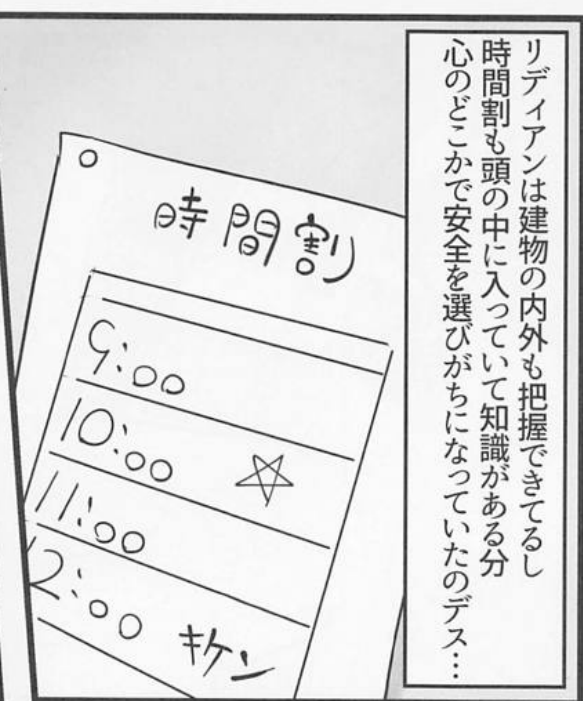 リディアンは建物の内外も把握できてるし
時間割も頭の中に入っていて知識がある分
心のどこかで安全を選びがちになっていたのデス…
時間割
9:00
10:00 ☆
11:00
12:00 キケン